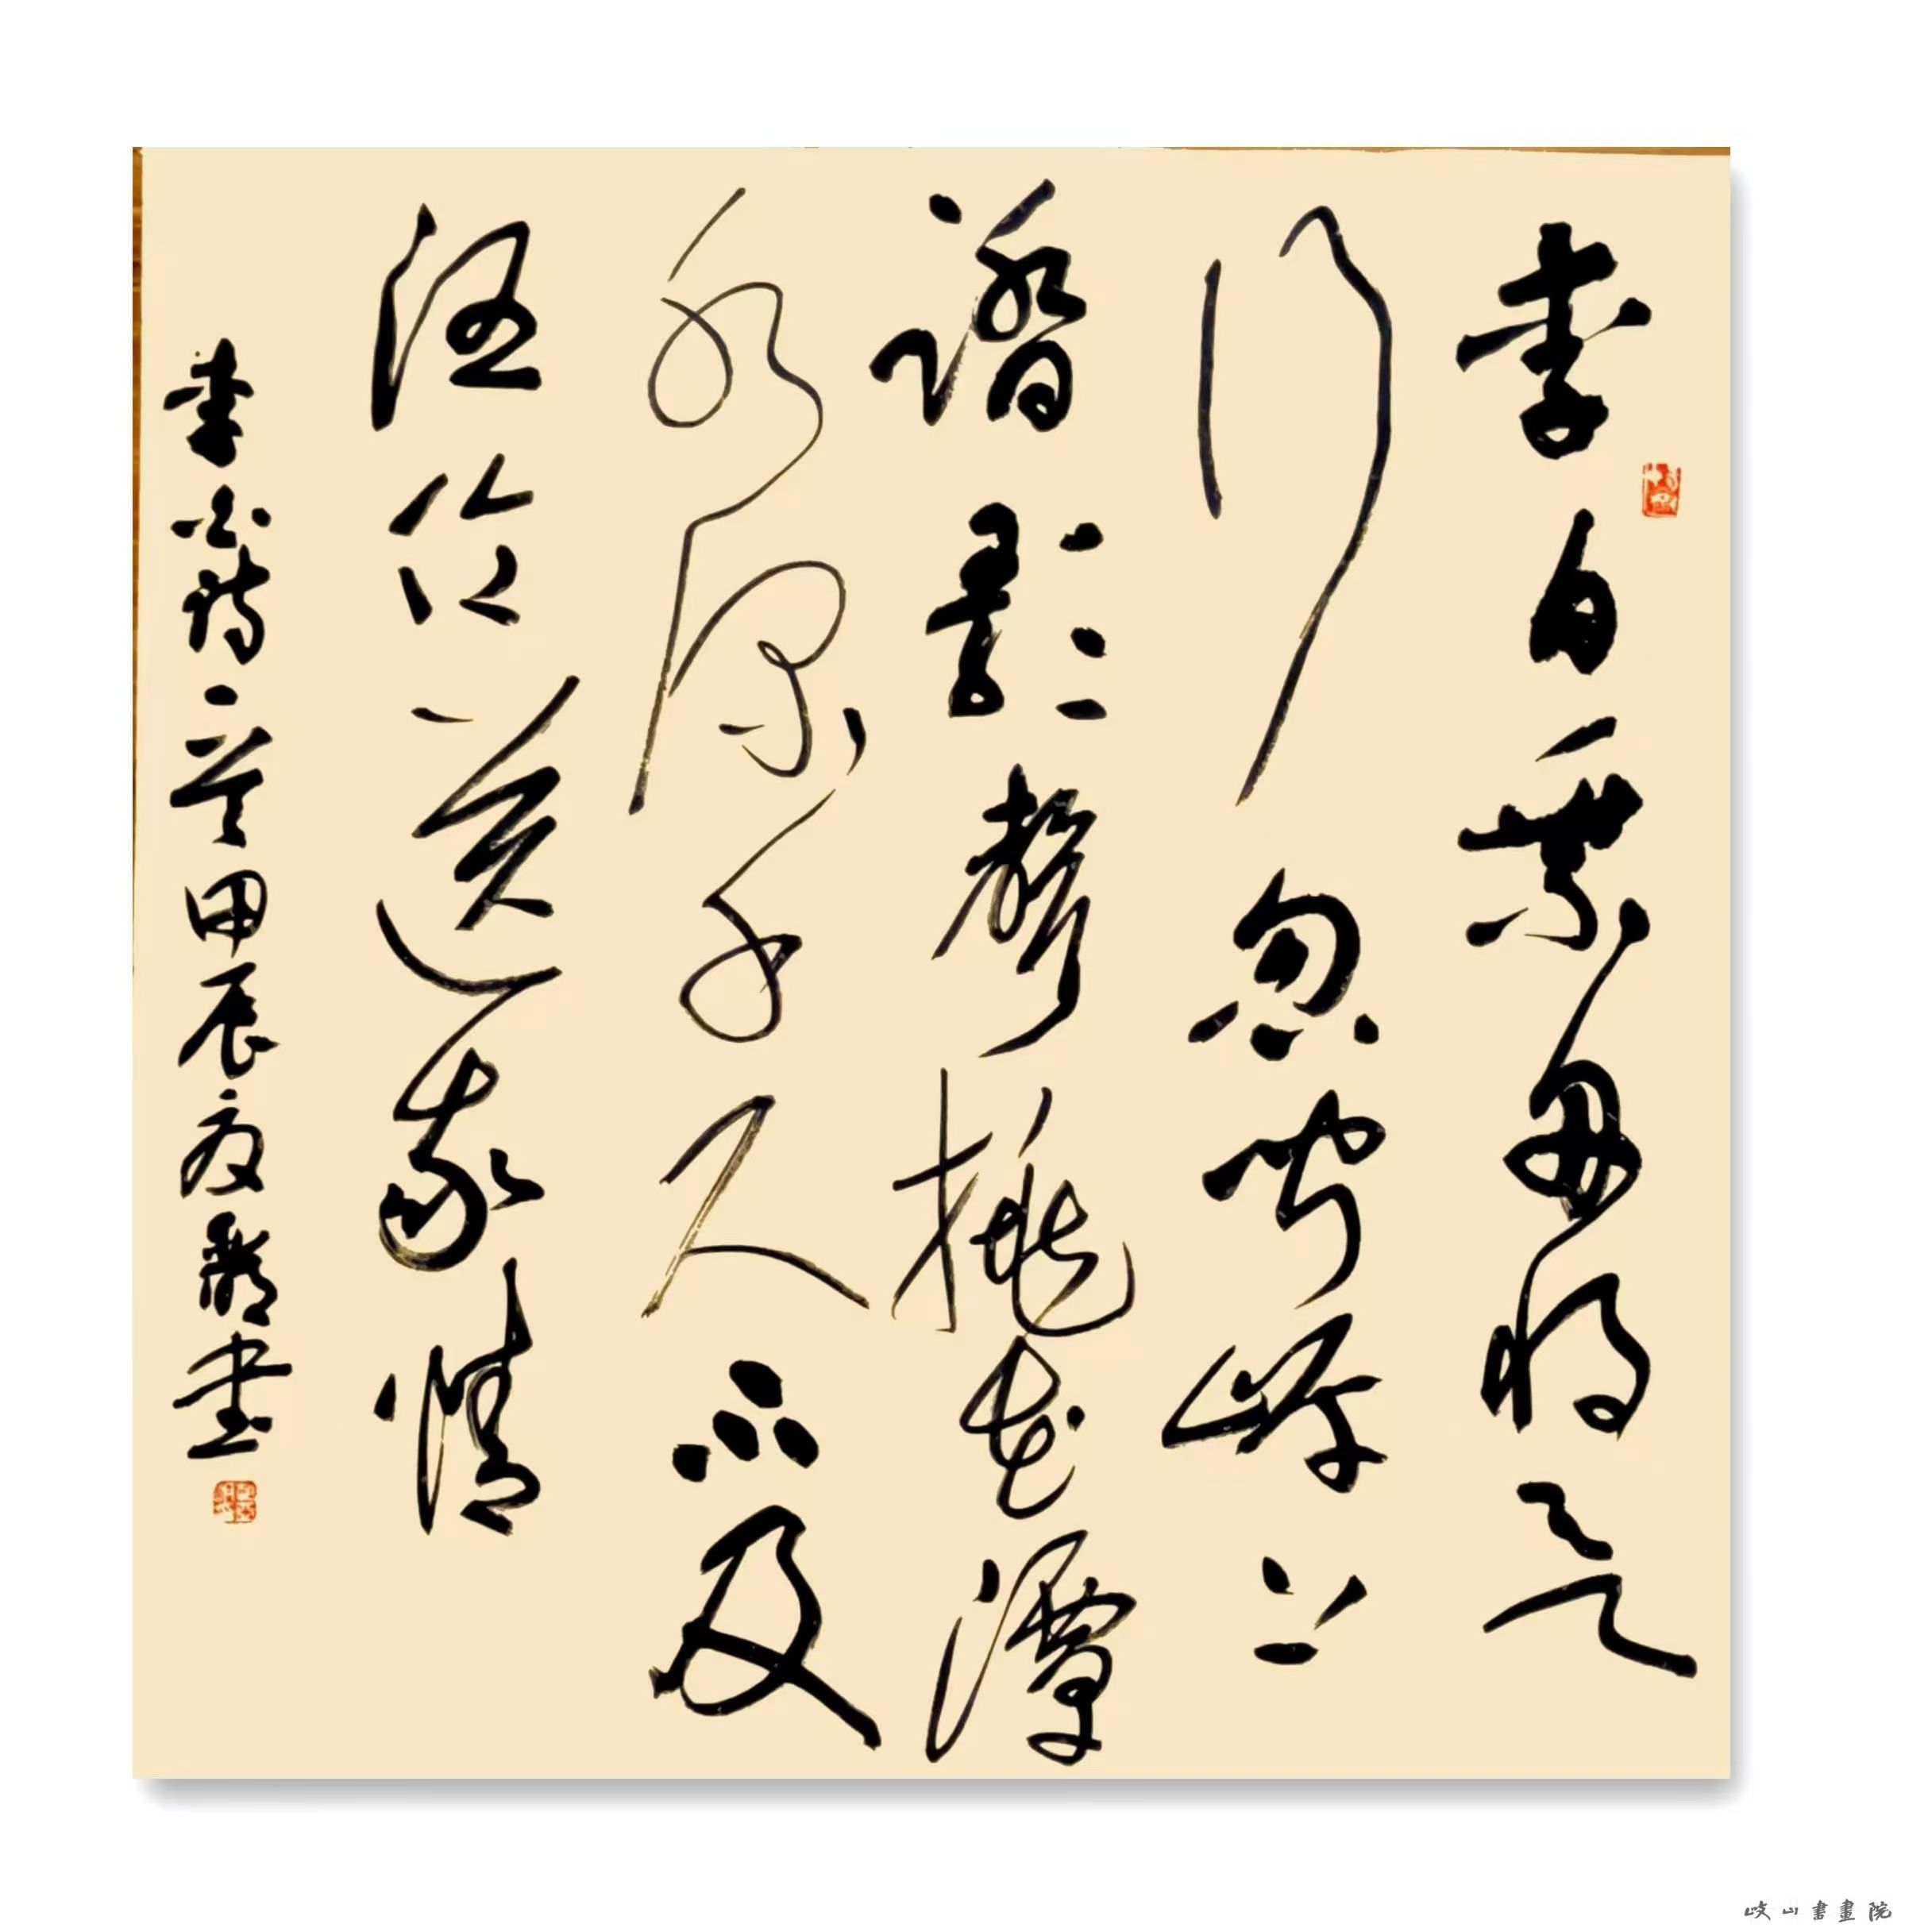 李白乘舟將欲
行忽聞岸上
踏歌聲桃花潭
水深千尺不及
汪倫送我情
李白詩一首甲辰夏書
岐山書畫院